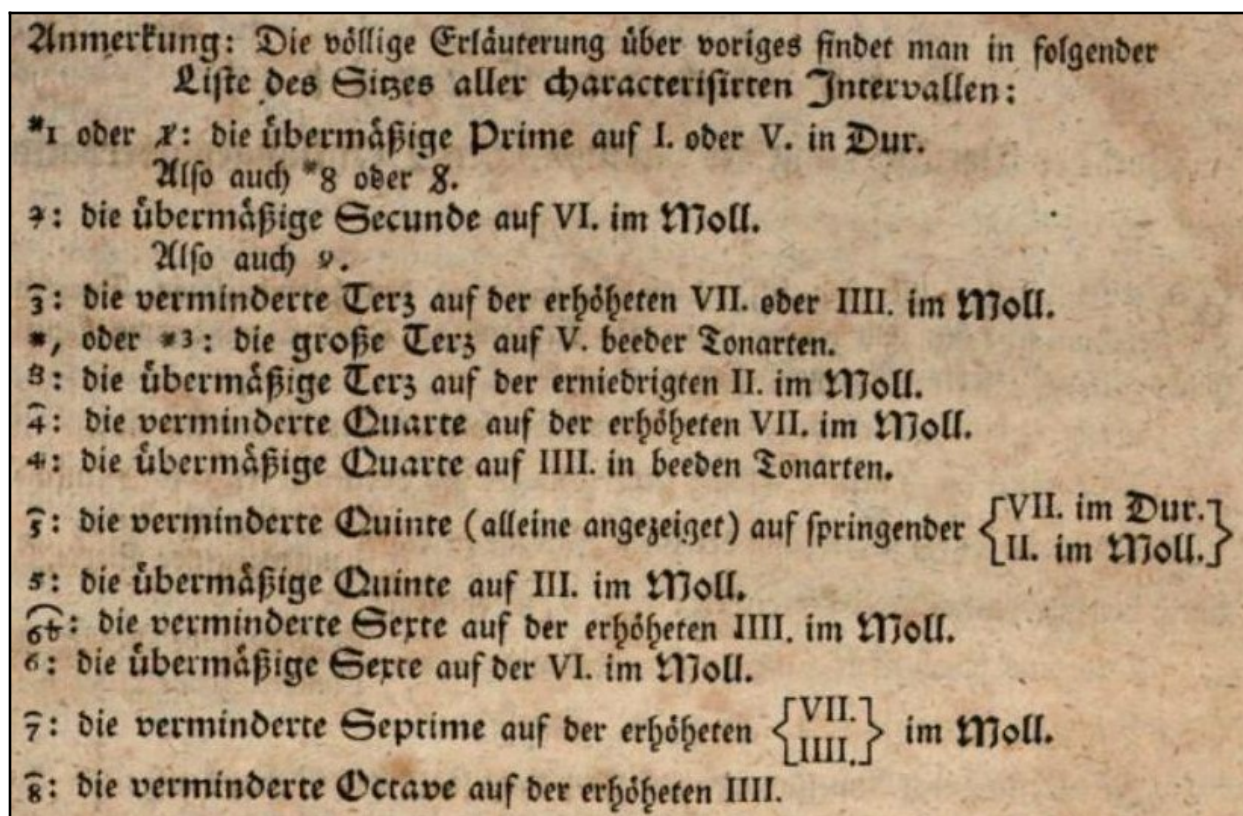 Anmerkung: Die völlige Erläuterung über voriges findet man in folgender
Liste des Sitzes aller characterisirten Intervallen:
*1 oder 1̸: die übermäßige Prime auf I. oder V. in Dur.
Also auch *8 oder 8̸.
2̸: die übermäßige Secunde auf VI. im Moll.
Also auch 9̸.
3̑: die verminderte Terz auf der erhöheten VII. oder IIII. im Moll.
*, oder *3: die große Terz auf V. beeder Tonarten.
3̸: die übermäßige Terz auf der erniedrigten II. im Moll.
4̑: die verminderte Quarte auf der erhöheten VII. im Moll.
4̸: die übermäßige Quarte auf IIII. in beeden Tonarten.
5̑: die verminderte Quinte (alleine angezeiget) auf springender {VII. im Dur.}
{II. im Moll.}
5̸: die übermäßige Quinte auf III. im Moll.
6♭̑: die verminderte Sexte auf der erhöheten IIII. im Moll.
6̸: die übermäßige Sexte auf der VI. im Moll.
7̑: die verminderte Septime auf der erhöheten {VII.} im Moll.
{IIII.}
8̑: die verminderte Octave auf der erhöheten IIII.